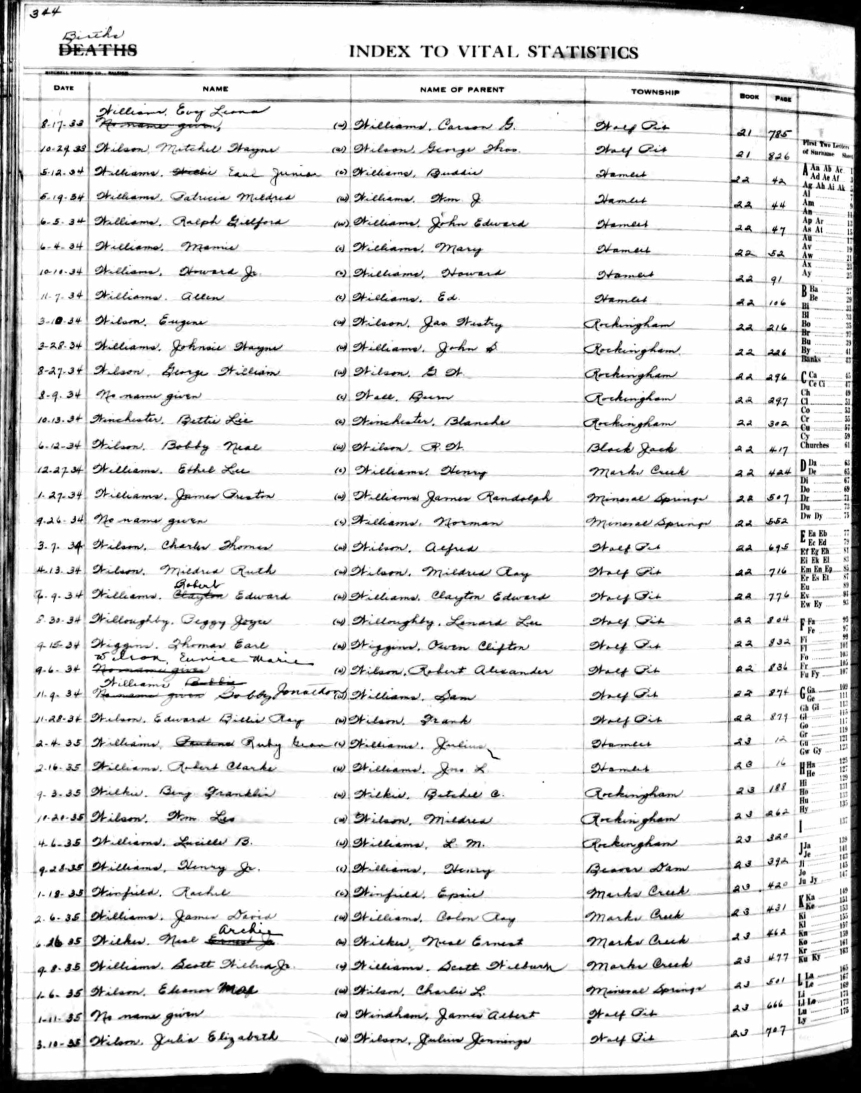 344
Births
DEATHS
INDEX TO VITAL STATISTICS
DATE NAME NAME OF PARENT TOWNSHIP BOOK PAGE
William, Evy Leona
8-17-33 No name given, (w) Williams, Carson G. Wolf Pit 21 785
10-29-33 Wilson, Mitchel Wayne Wilson, George Thos. Wolf Pit 21 826
5-12-34 Williams, Earl Junior Williams, Buddie Hamlet 22 42
5-19-34 Williams, Patricia Mildred (w) Williams, Wm. J Hamlet 22 44
6-5-34 Williams, Ralph Gillford (w) Williams, John Edward Hamlet 22 47
6-4-34 Williams, Mamie (c) Williams, Mary Hamlet 22 52
10-10-34 Williams, Howard Jr. (c) Williams, Howard Hamlet 22 91
11-7-34 Williams, Allen (c) Williams, Ed. Hamlet 22 106
3-10-34 Wilson, Eugene (w) Wilson, Jas Westry Rockingham 22 216
3-28-34 Williams, Johnsie Wayne (w) Williams, John S Rockingham 22 226
8-27-34 Wilson, George William (w) Wilson, G. W. Rockingham 22 296
8-9-34 No name given (c) Wall, Burn Rockingham 22 297
10-13-34 Winchester, Bettie Lie (w) Winchester, Blanche Rockingham 22 302
6-12-34 Wilson, Bobby Neal (w) Wilson, R. W. Black Jack 22 417
12-27-34 Williams, Ethel Lee (c) Williams, Henry Marks Creek 22 424
1-27-34 Williams, James Preston (w) Williams James Randolph Mineral Springs 22 507
9-26-34 No name given (c) Williams, Norman Mineral Springs 22 552
3-7-34 Wilson, Charles Thomas (w) Wilson, Alfred Wolf Pit 22 695
4-13-34 Wilson, Mildred Ruth (w) Wilson, Mildred Ray Wolf Pit 22 716
Robert
9-34 Williams, Clayton Edward (w) Williams, Clayton Edward Wolf Pit 22 776
5-30-34 Willoughby, Peggy Joyce (w) Willoughby, Lenard Lee Wolf Pit 22 804
9-15-34 Wiggins, Thomas Earl (w) Wiggins, Owen Clifton Wolf Pit 22 832
Wilson, Eunice Marie
9-6-34 No name given (w) Wilson, Robert Alexander Wolf Pit 22 836
Williams Bobbie
11-9-34 No name given Bobby (w) Williams, Sam Wolf Pit 22 874
11-28-34 Wilson, Edward Billie Ray (w) Wilson, Frank Wolf Pit 22 879
2-4-35 Williams, Pauline Ruby Gean (c) Williams, Julius Hamlet 23 12
2-16-35 Williams, Robert Clarke (w) Williams, Jno L. Hamlet 23 16
9-3-35 Wilkie, Benj Franklin (w) Wilkie, Betchel C. Rockingham 23 188
10-20-35 Wilson, Wm. Leo (w) Wilson, Mildred Rockingham 23 262
4-6-35 Williams, Lucille B. (w) Williams, L. M. Rockingham 23 320
9-23-35 Williams, Henry Jr. (c) Williams, Henry Beaver Dam 23 392
1-18-35 Winfield, Rachel (c) Winfield, Epsie Marks Creek 23 420
2-6-35 Williams, James David (w) Williams, Colon Ray Marks Creek 23 431
Archie
6-26-35 Wilkes, Neal Ernest Jr (w) Wilkes, Neal Ernest Marks Creek 23 462
9-8-35 Williams, Scott Wilburn Jr. Williams, Scott Wilburn Marks Creek 23 477
1-6-35 Wilson, Eleanor Mae (w) Wilson, Charlie L. Mineral Springs 23 501
1-11-35 No name given (w) Windham, James Albert Wolf Pit 23 666
3-10-35 Wilson, Julia Elizabeth (w) Wilson, Julius Jennings Wolf Pit 23 707
First Two Letters
of Surname
A Aa Ab Ac
Ad Ae Af
Ag Ah Ai Ak
Al
Am
An
Ap Ar
As At
Au
Av
Aw
Ax
Ay
B Ba
Be
Bi
Bl
Bo
Br
Bu
By
Banks
C Ca
Ce Ci
Ch
Cl
Co
Cr
Cu
Cy
Churches
D Da
De
Di
Do
Dr
Du
Dw Dy
E Ea Eb
Ec Ed
Ef Eg Eh
Ei Ek El
Em En Ep
Er Es Et
Eu
Ev
Ew Ey
F Fa
Fe
Fi
Fl
Fo
Fr
Fu Fy
G Ga
Ge
Gh Gi
Gl
Go
Gr
Gu
Gw Gy
H Ha
He
Hi
Ho
Hu
Hy
I
J Ja
Je
Ji
Jo
Ju Jy
K Ka
Ke
Ki
Kl
Kn
Ko
Kr
Ku Ky
L La
Le
Li
Ll Lo
Lu
Ly